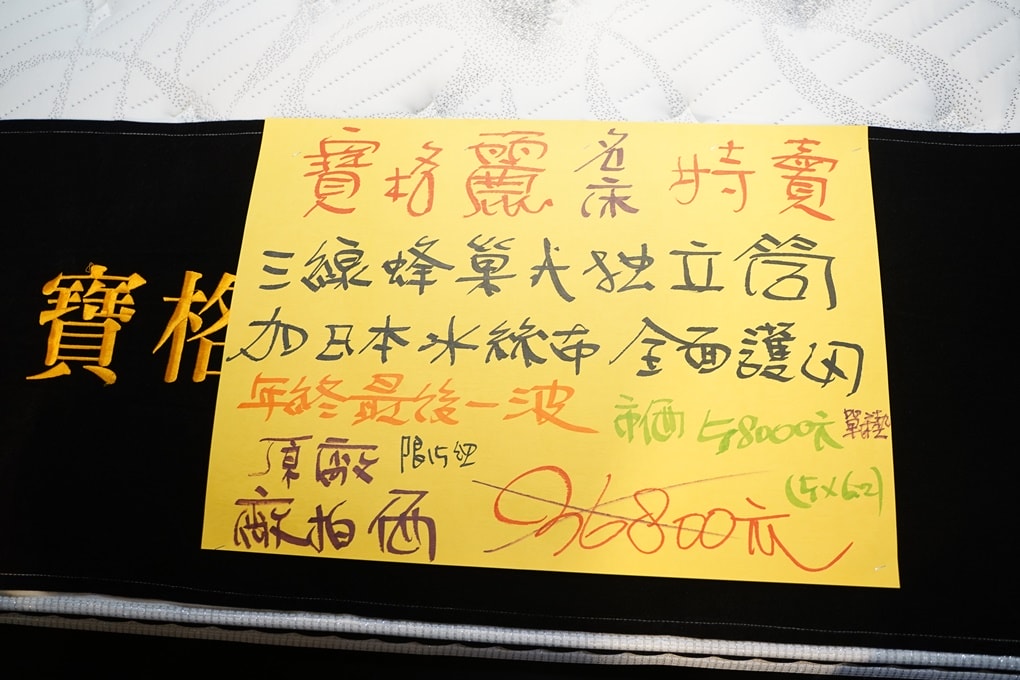 寶格麗名床特賣
三線蜂巢式独立筒
寶格
加日本冰絲布全面護內
年終最後一波
市価58000元單墊
頂廠限15組
(5×6.2)
廠拍価 36800元